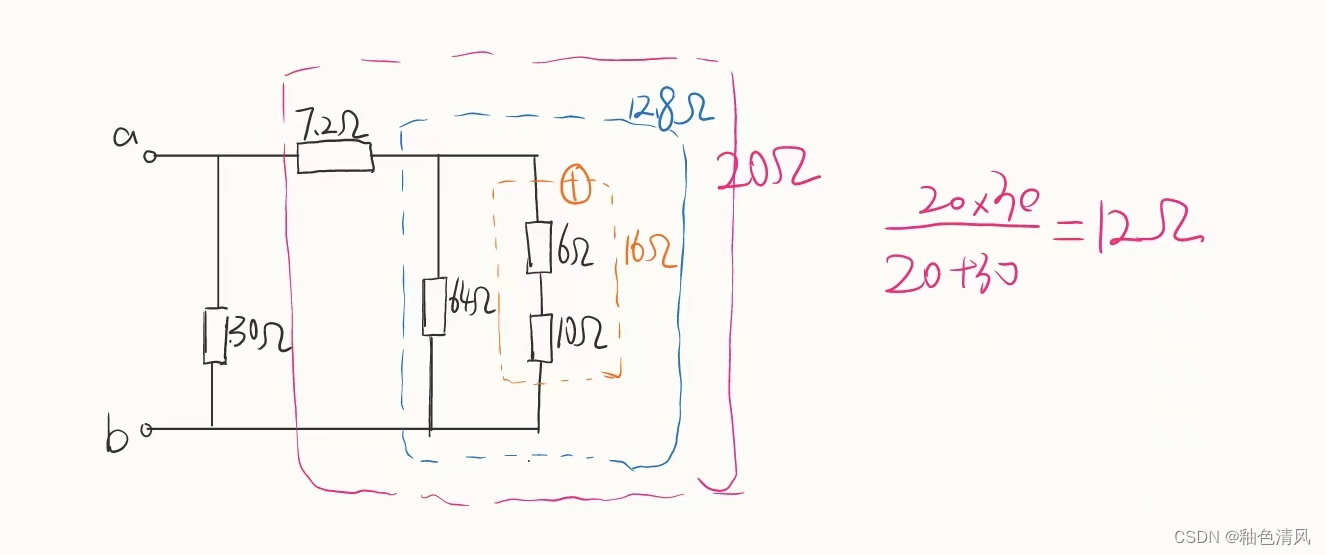 12.8Ω
7.2Ω
a
20Ω
20×30
20+30
=12Ω
①
6Ω
16Ω
64Ω
10Ω
30Ω
b
CSDN @釉色清风